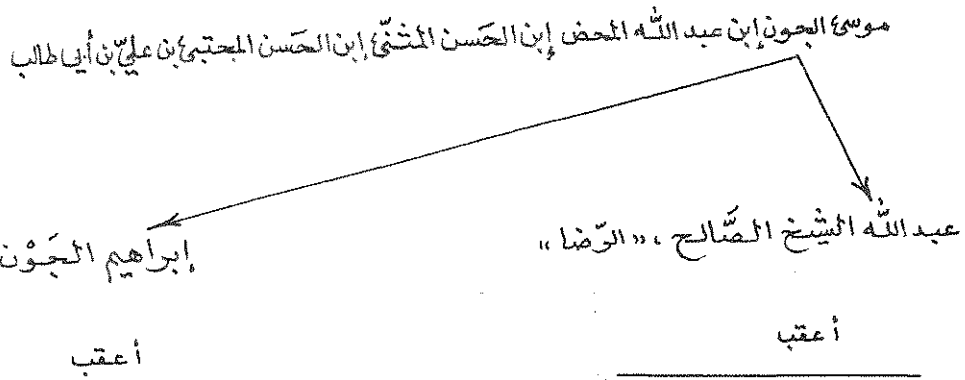 موسىٰ الجون إبن عبد اللّه المحض إبن الحَسن المثنّىٰ إبن الحَسن المجتبىٰ بن عليّ بن أبي طالب
عبد اللّه الشيخ الصَّالح ، «الرّضا»
إبراهيم الجَوْن
أعقب
أعقب